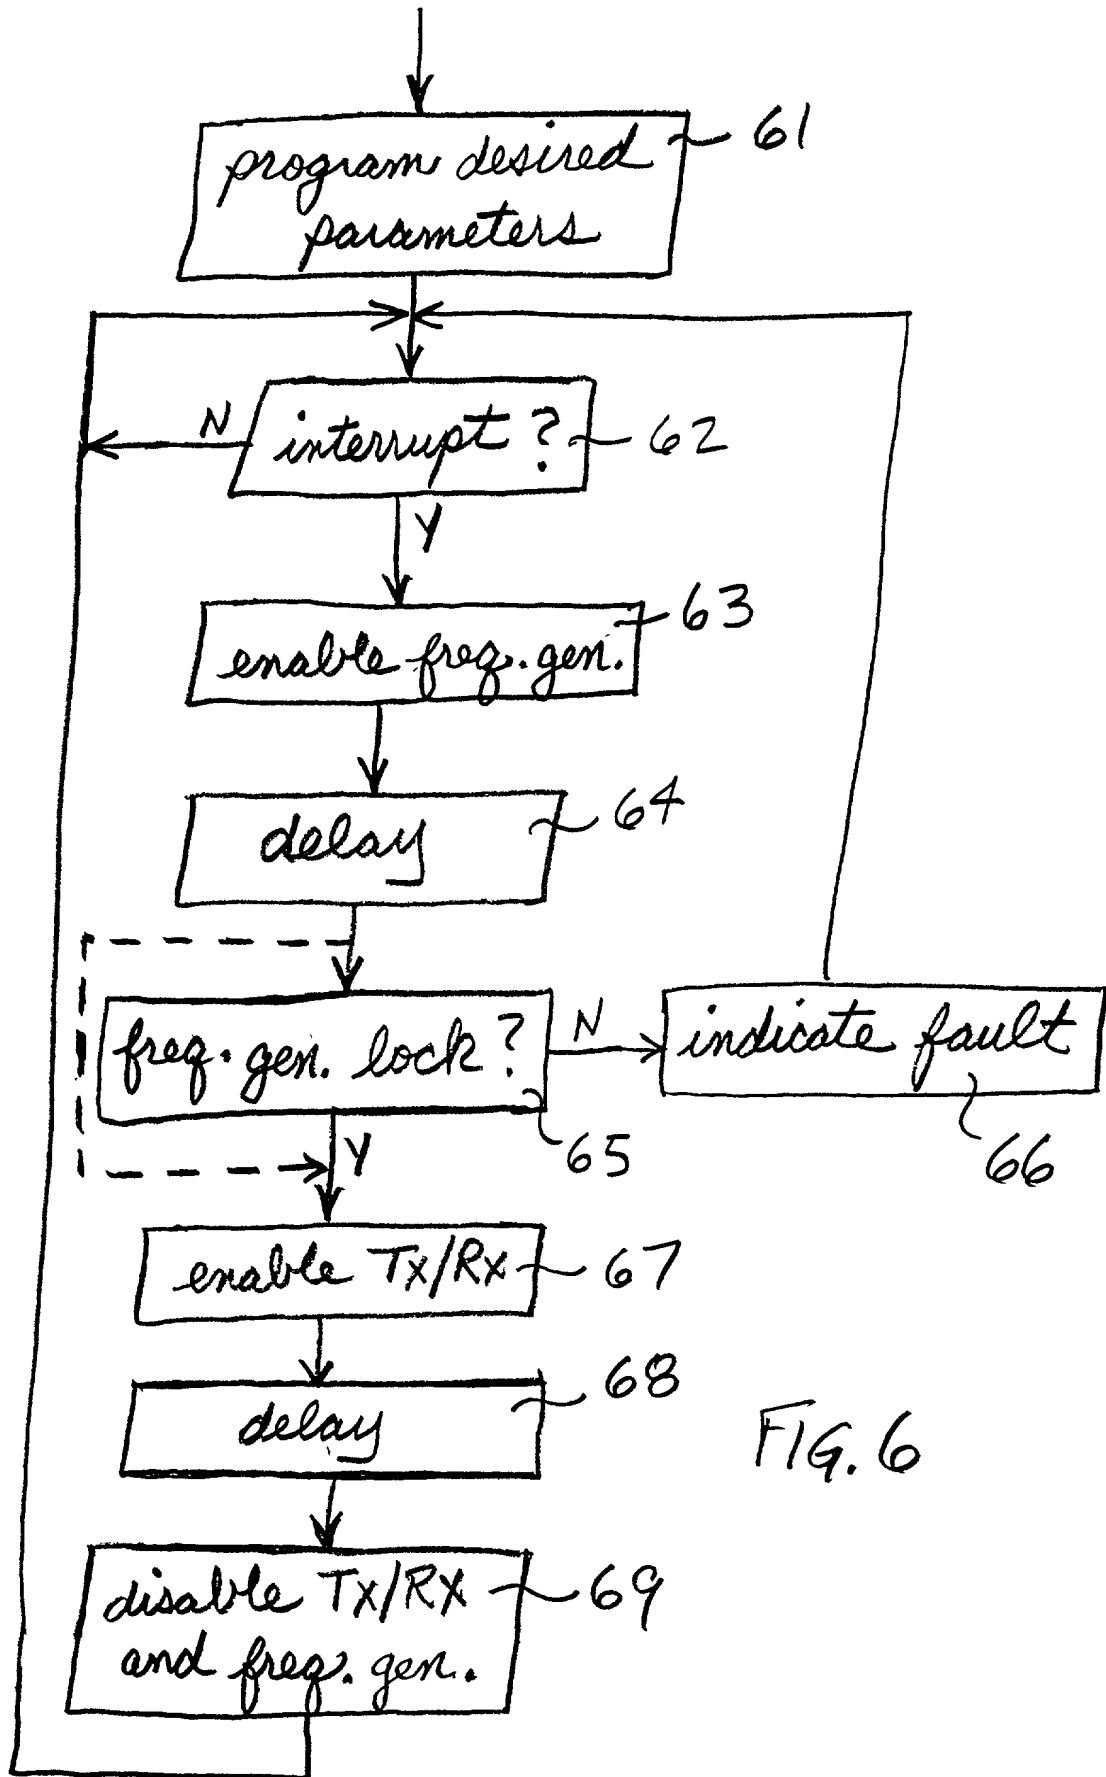 61
program desired
parameters
N
interrupt ?
62
Y
63
enable freq. gen.
64
delay
freq. gen. lock ?
N
indicate fault
65
66
Y
enable Tx/Rx
67
68
delay
FIG. 6
disable Tx/RX
69
and freq. gen.